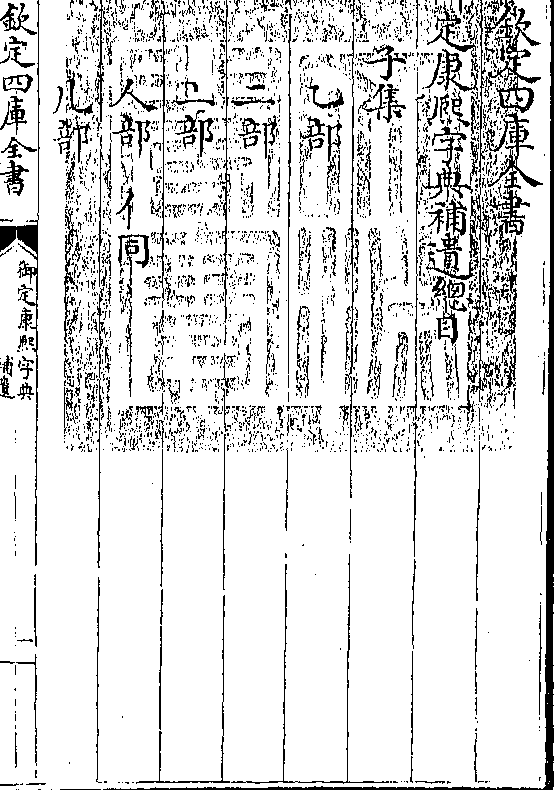 欽定四庫全書
定康熙字典補遺總目
子集
乙部
二部
亠部
人部 亻同
儿部
欽定四庫全書
御定康熙字典
補遺
一